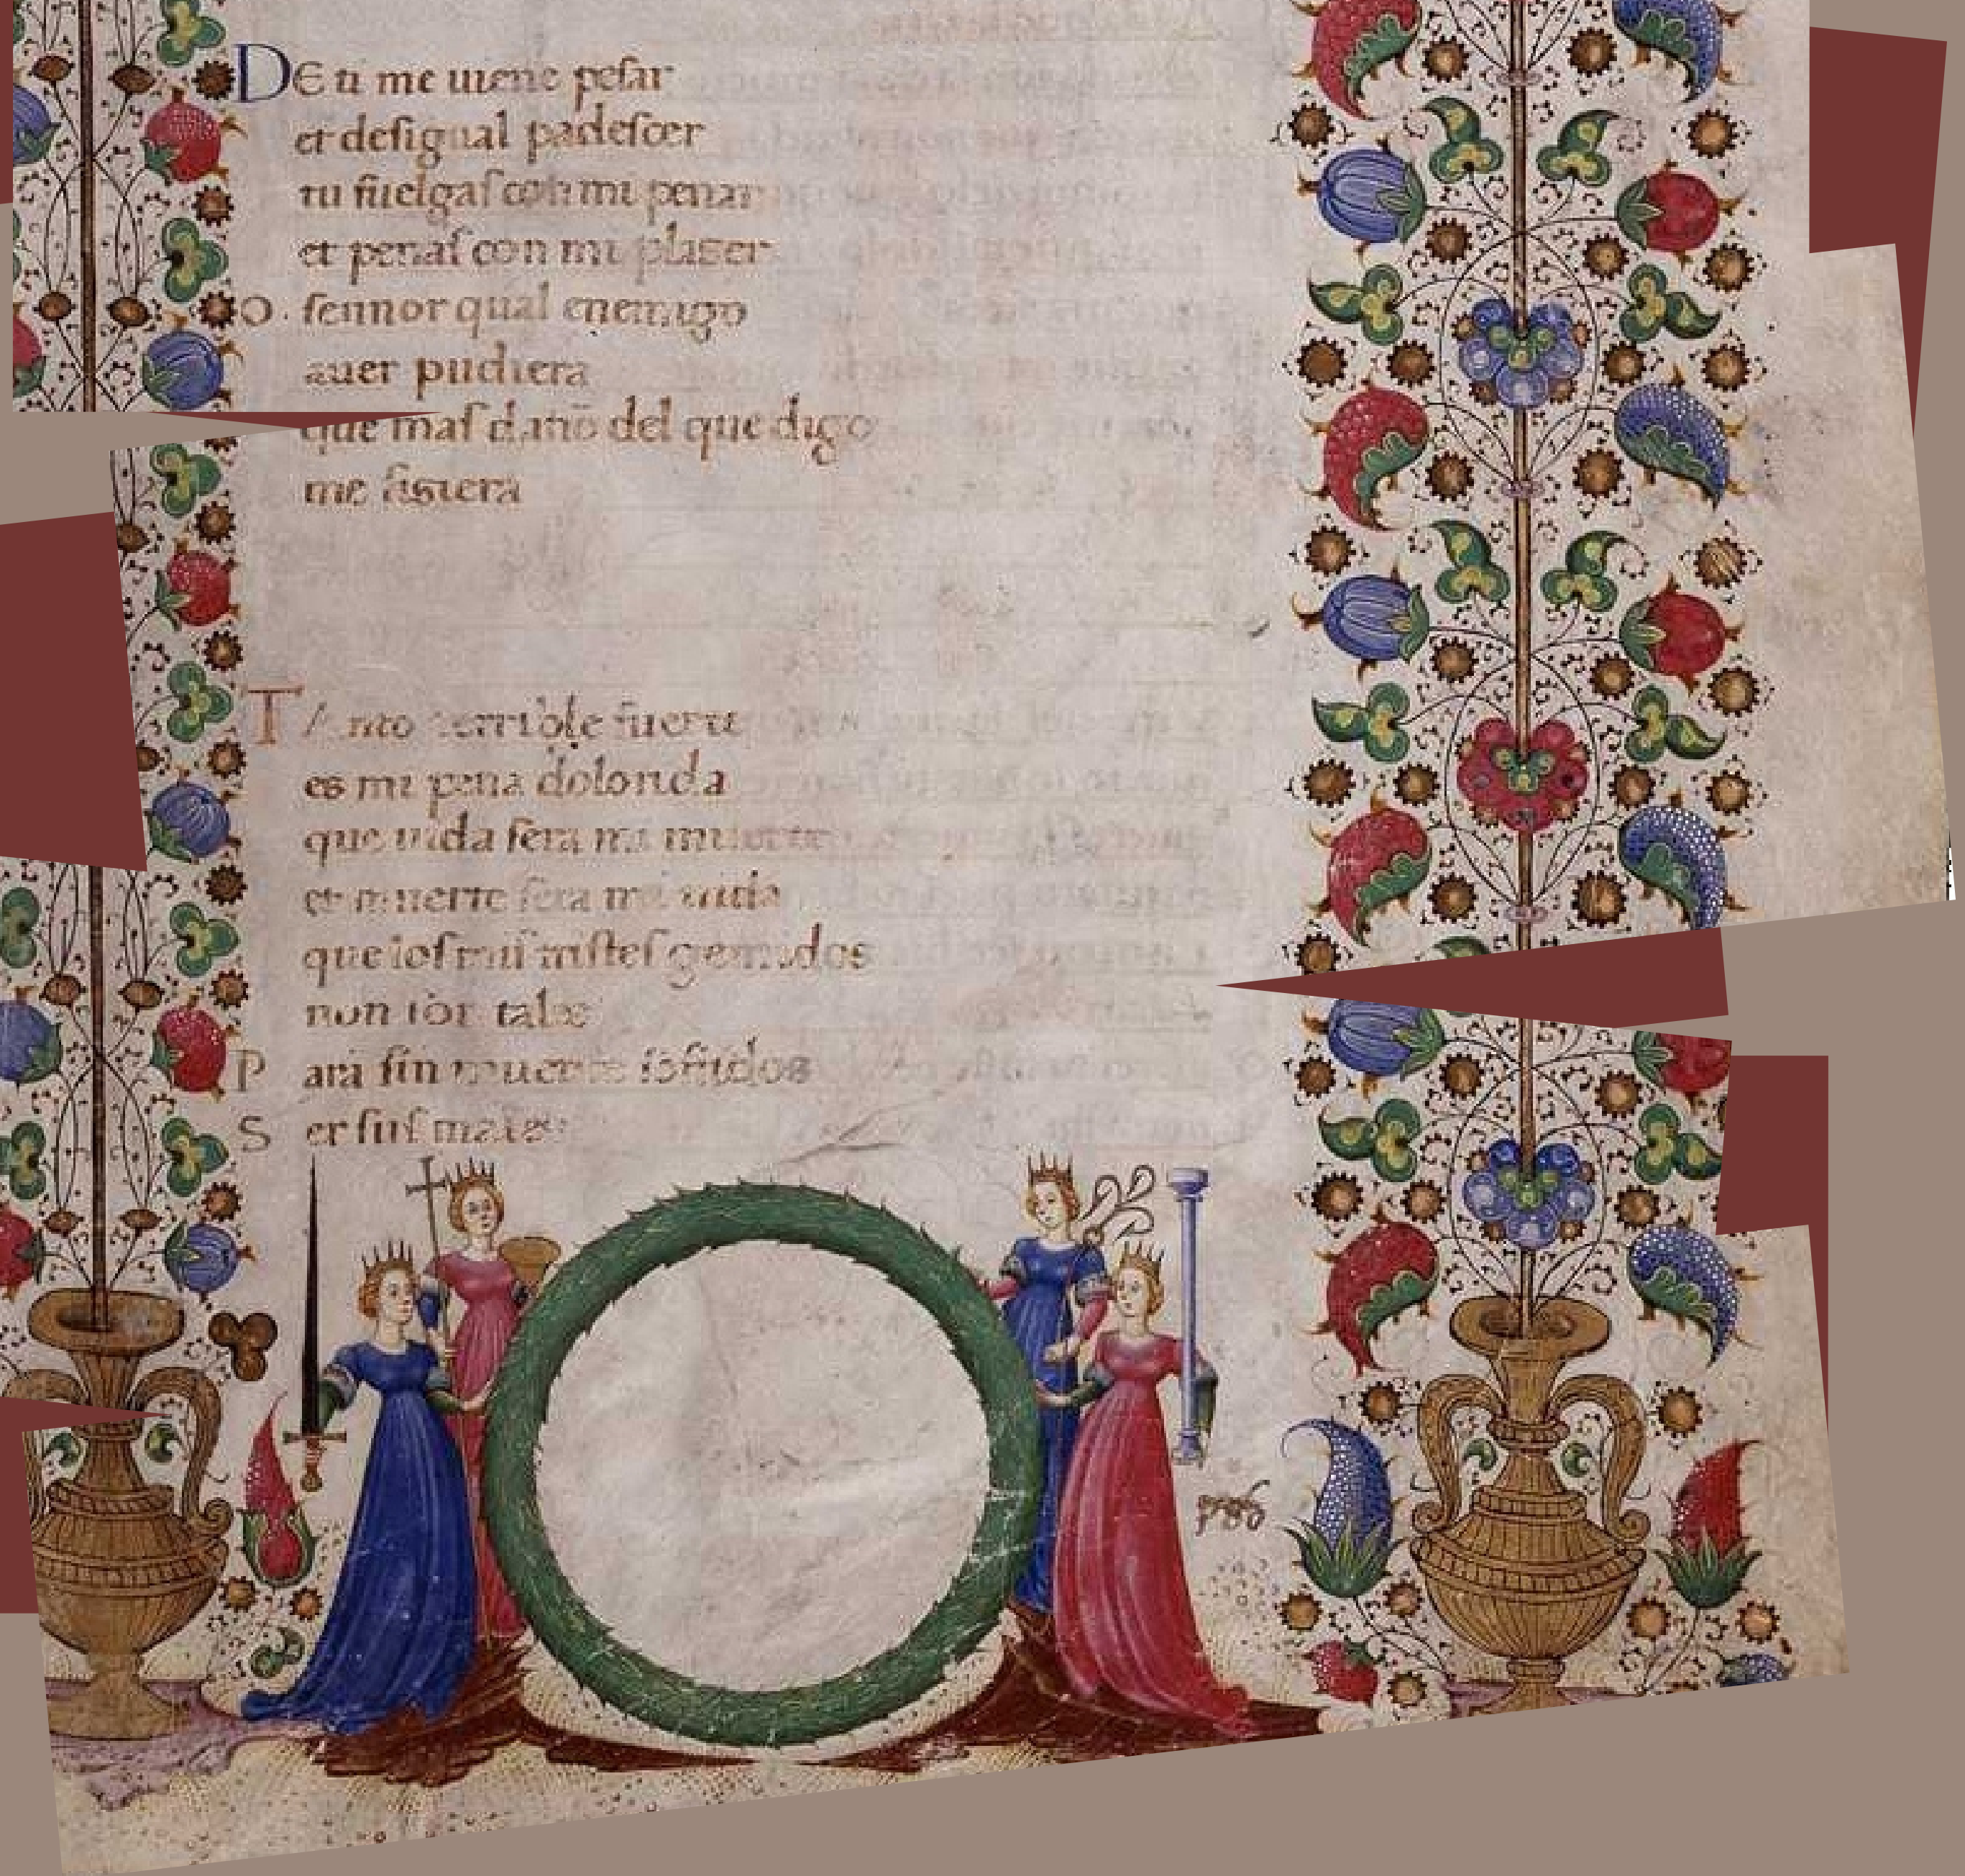 DE ti me uiene pesar
et desigual padescer
tu fuelgas con mi penar
et penas con mi plaser
O sennor qual enemigo
auer pudiera
que mas danno del que digo
me fisiera
TAnto terrible fuerte
es mi pena dolorida
que uida sera mi muerte
et muerte sera mi uida
que los mis tristes gemidos
non son tales
Para sin muerte sofridos
Ser sus males